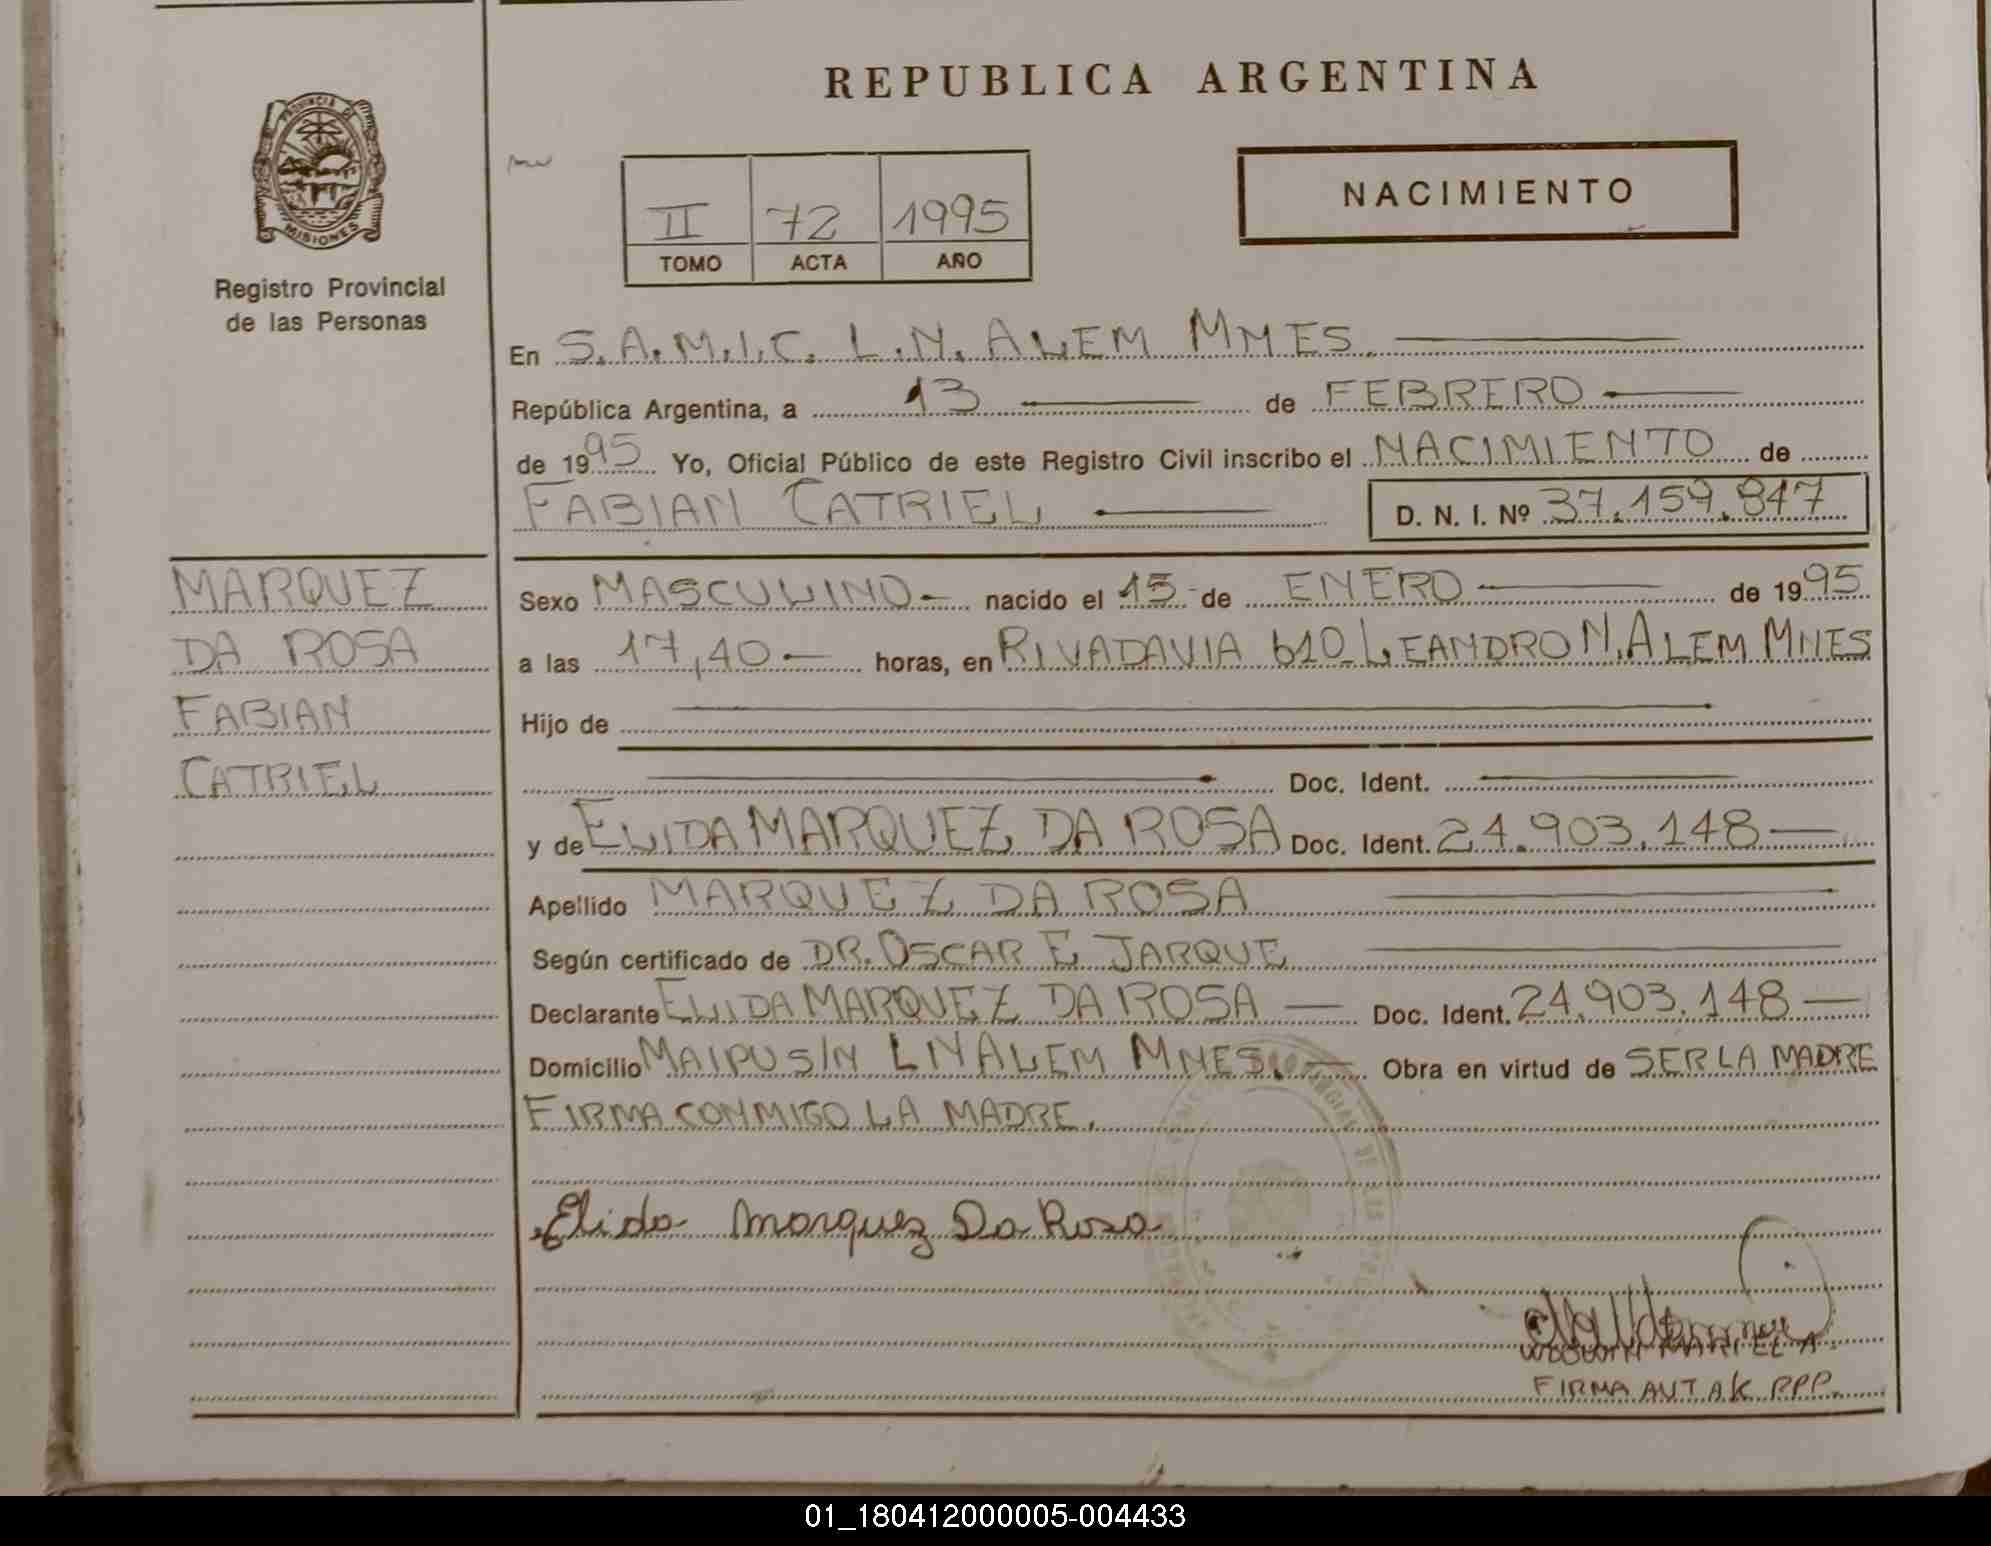 REPUBLICA ARGENTINA
PROVINCIA DE
MISIONES
Registro Provincial
de las Personas
II 72 1995
TOMO ACTA AÑO
NACIMIENTO
En S.A.M.I.C. L.N. ALEM MNES.
República Argentina, a 13 de FEBRERO
de 1995 Yo, Oficial Público de este Registro Civil inscribo el NACIMIENTO de
FABIAN CATRIEL D. N. I. Nº 37.159.847
MARQUEZ
DA ROSA
FABIAN
CATRIEL
Sexo MASCULINO - nacido el 15 de ENERO de 1995
a las 17,40 horas, en RIVADAVIA 610 LEANDRO N. ALEM MNES
Hijo de
Doc. Ident.
y de ELIDA MARQUEZ DA ROSA Doc. Ident. 24.903.148
Apellido MARQUEZ DA ROSA
Según certificado de DR. OSCAR E JARQUE
Declarante ELIDA MARQUEZ DA ROSA Doc. Ident. 24.903.148
Domicilio MAIPU S/N LN ALEM MNES. Obra en virtud de SER LA MADRE
FIRMA CONMIGO LA MADRE.
Elida Marquez Da Rosa
MARIEL A.
FIRMA AUT
01_180412000005-004433